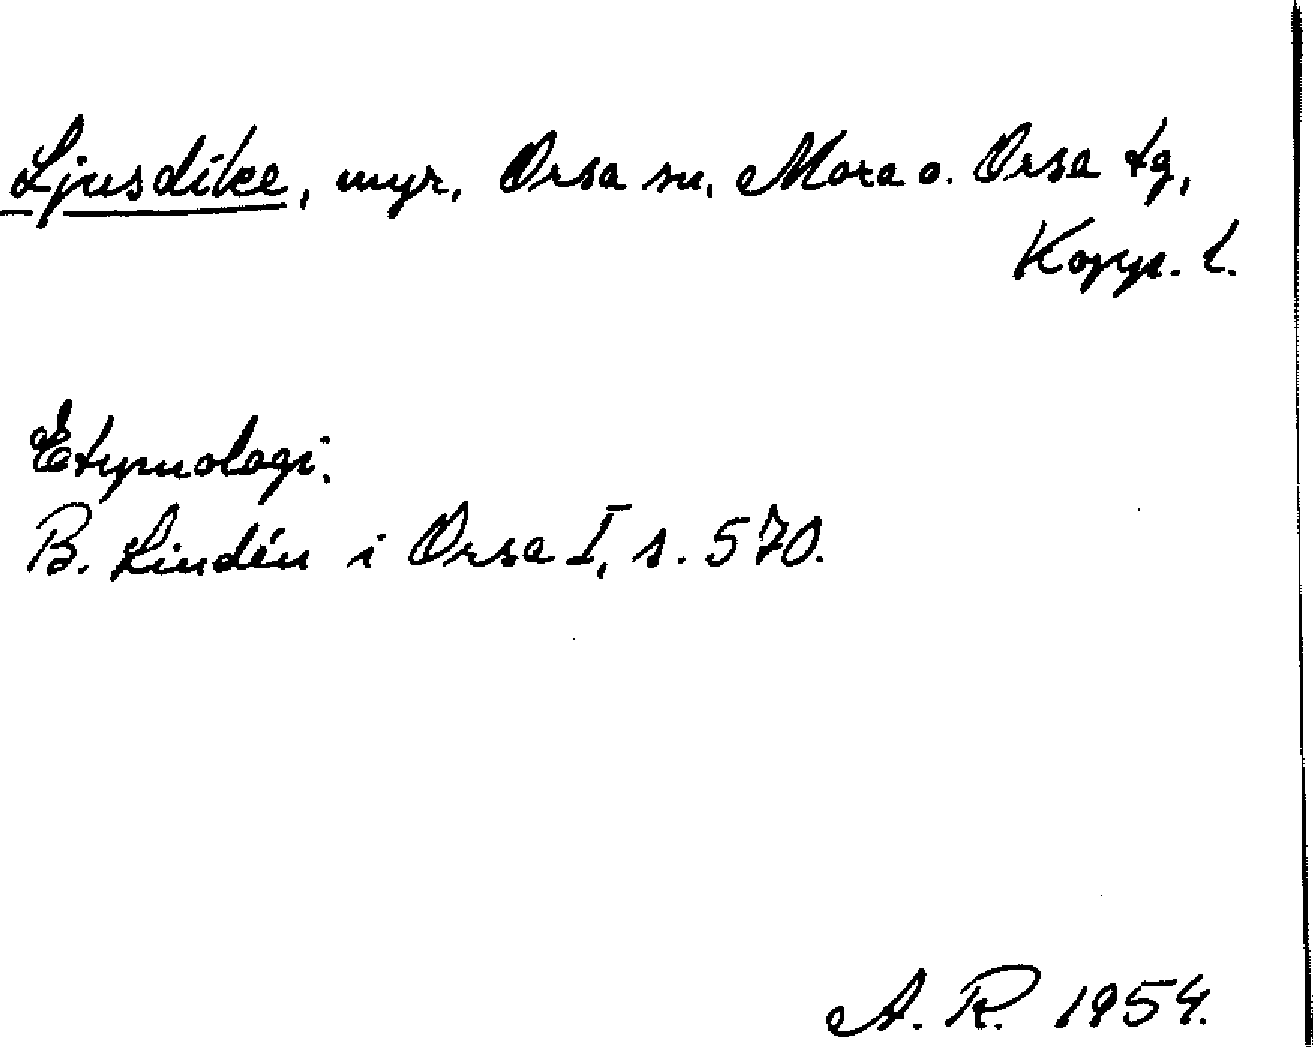 Ljusdike, myr, Orsa sn, Mora o. Orsa tg,
Kopp. l.
Etymologi:
B. Lindén i Orsa I, s. 570.
A. R. 1954.